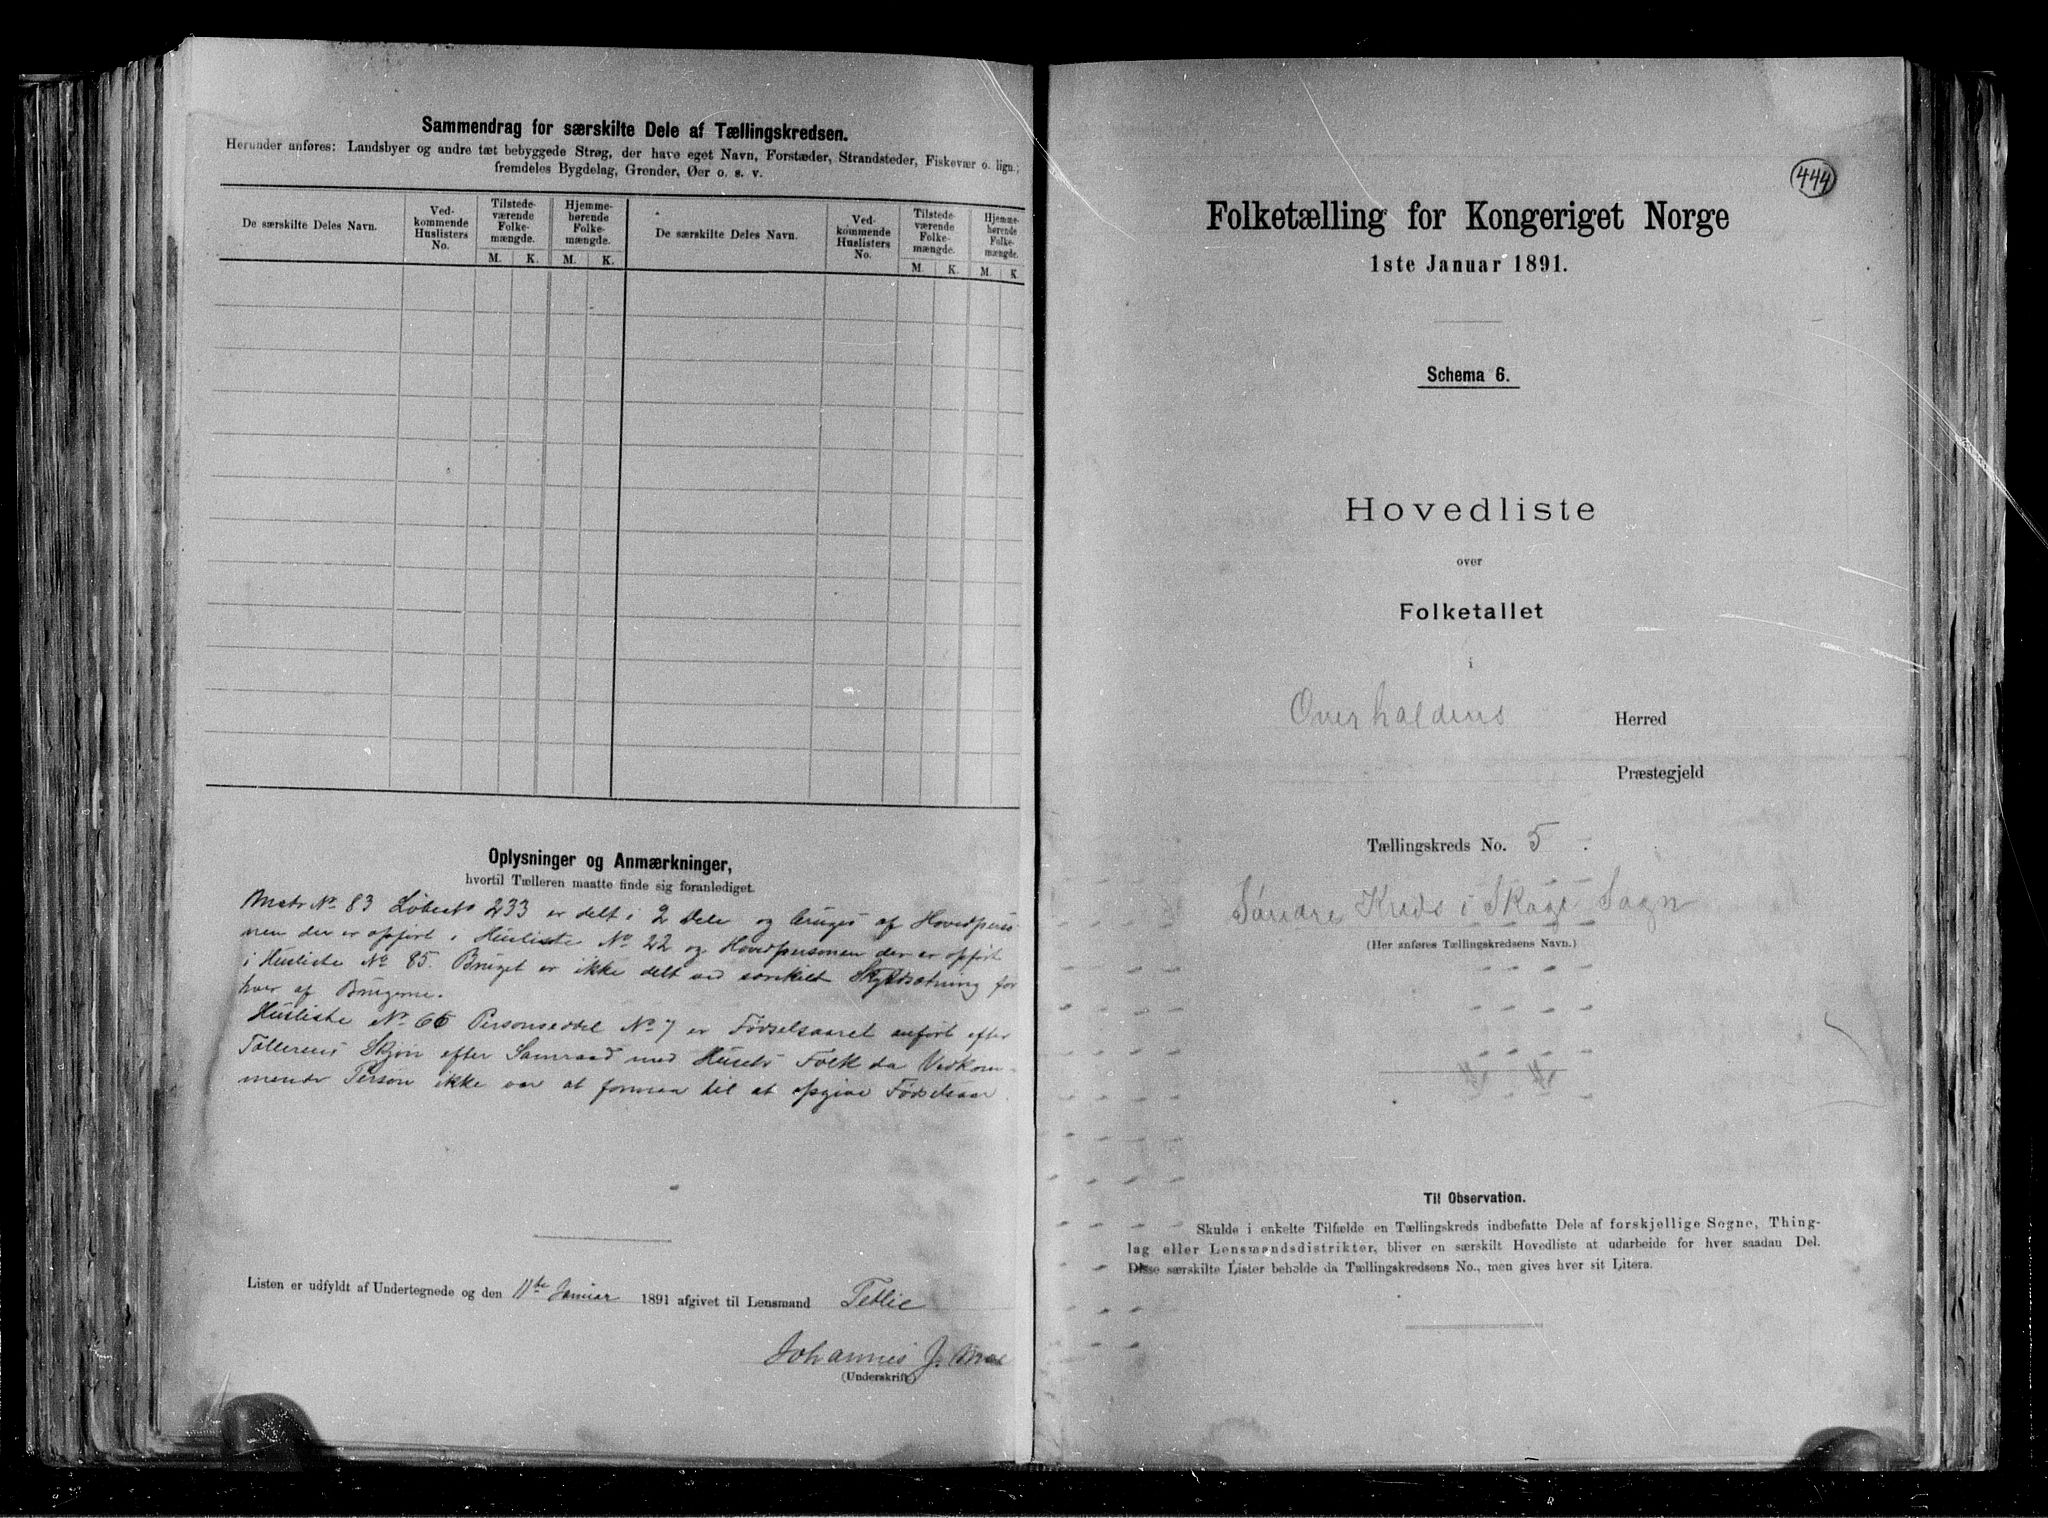 Sammendrag for særskilte Dele af Tællingskredsen.
Herunder anføres: Landsbyer og andre tæt bebyggede Strøg, der have eget Navn, Forstæder, Strandsteder, Fiskevær o. lign.;
fremdeles Bygdelag, Grender, Øer o. s. v.
De særskilte Deles Navn.
Ved-
kommende
Huslisters
No.
Tilstede-
værende
Folke-
mængde.
Hjemme-
hørende
Folke-
mængde.
De særskilte Deles Navn.
Ved-
kommende
Huslisters
No.
Tilstede-
værende
Folke-
mængde.
Hjemme-
hørende
Folke-
mængde.
M. K. M. K. M. K. M. K
Oplysninger og Anmærkninger,
hvortil Tælleren maatte finde sig foranlediget.
Matr No 83 Løbents 233 er delt i 2 Dele og bruges af Hovedperso
nen der er opført i Husliste No 22 og Hovedpersonen der er opført
i Husliste No 85. Bruget er ikke delt ved særskilt Skyldsætning for
hver af Brugerne.
Husliste No 66 Personseddel No 7 er Fødselsaaret anført efter
Tællerens Skjøn efter Samraad med Husets Folk da Vedkom-
mende Person ikke var at formaa til at opgive Fødselsaar.
Listen er udfyldt af Undertegnede og den 11te Januar 1891 afgivet til Lensmand Tetlie
Johannes J.
(Underskrift)
444
Folketælling for Kongeriget Norge
1ste Januar 1891.
Schema 6.
Hovedliste
over
Folketallet
i
Overhaldens Herred
Præstegjeld
Tællingskreds No. 5.
Søndre Kreds i Skage Sogn
(Her anføres Tællingskredsens Navn.)
Til Observation.
Skulde i enkelte Tilfælde en Tællingskreds indbefatte Dele af forskjellige Sogne, Thing-
lag eller Lensmandsdistrikter, bliver en særskilt Hovedliste at udarbeide for hver saadan Del.
Disse særskilte Lister beholde da Tællingskredsens No., men gives hver sit Litera.